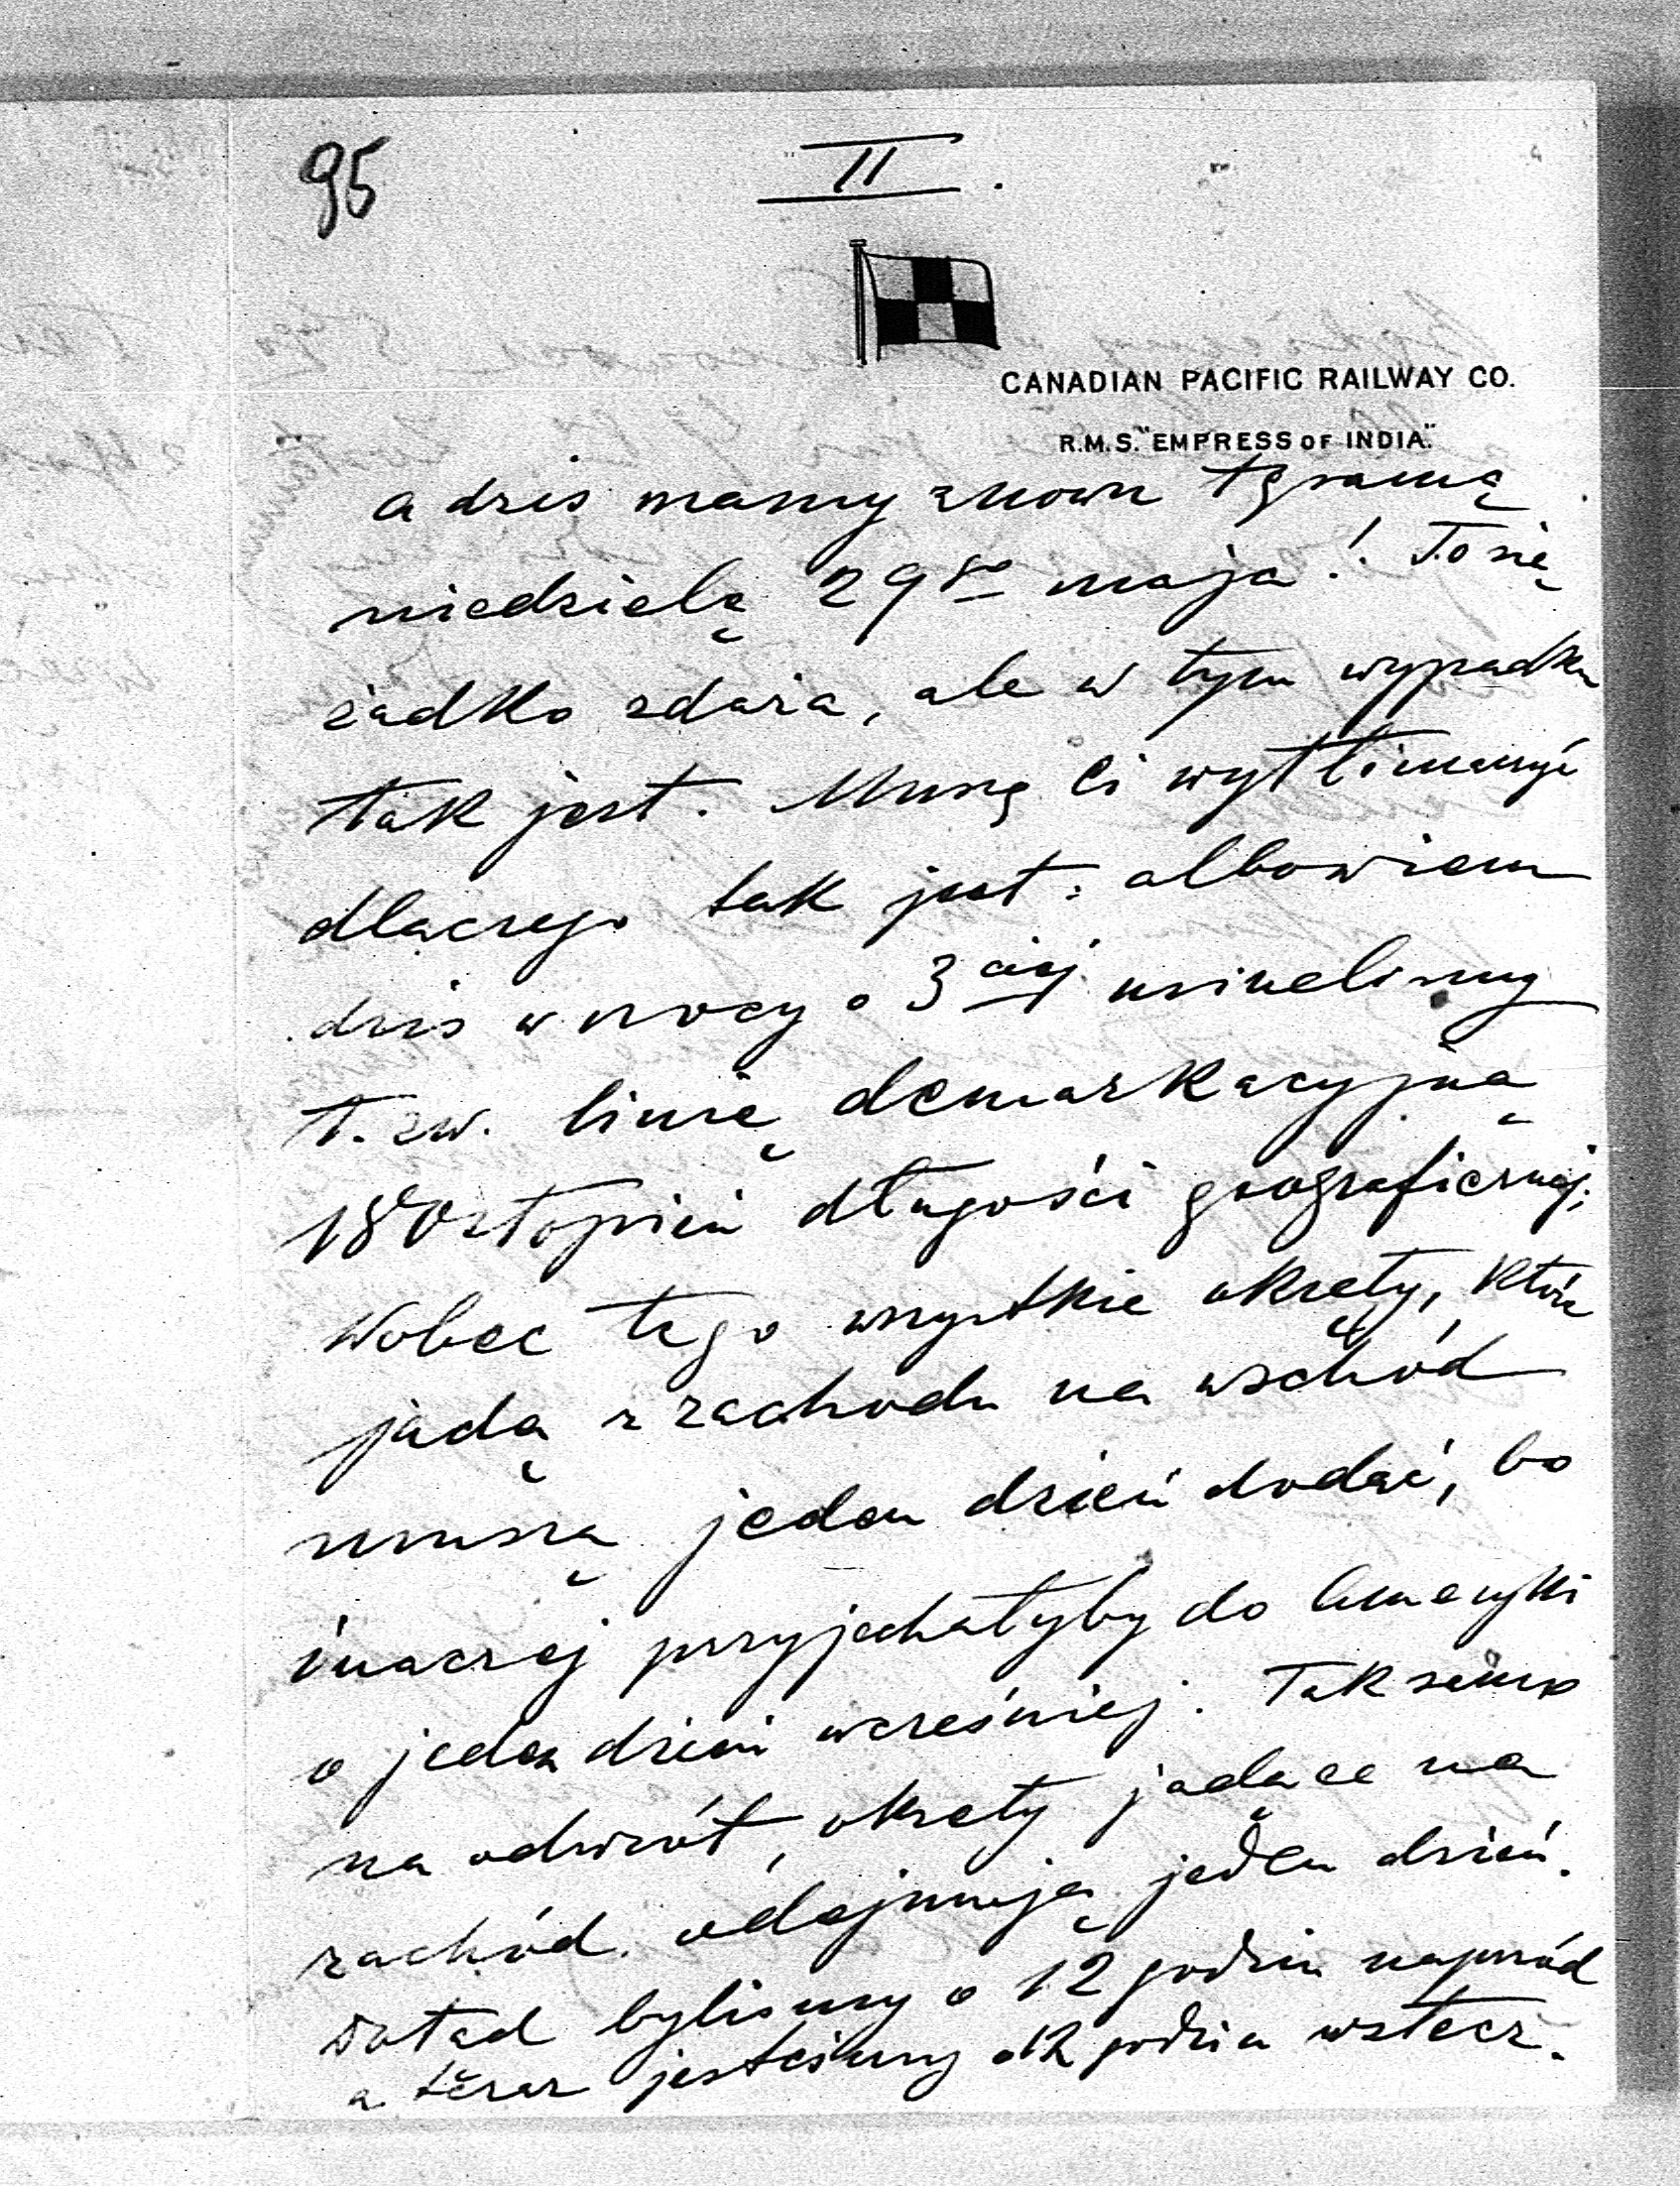 95
II.
CANADIAN PACIFIC RAILWAY CO.
R.M.S. "EMPRESS OF INDIA"
a dzis mamy znowu tę samą
niedzielę 29go maja! To się
żadko zdaża, ale w tym wypadku
tak jest. Muszę Ci wytłomaczyć
dlaczego tak jest: albowiem
dziś w nocy o 3ciej minelismy
t. zw. linię demarkacyjną
180 stopień długości geograficznej;
Wobec tego wszystkie okręty, które
jadą z zachodu na wschód
muszą jeden dzień dodać, bo
inaczej przyjechałyby do Ameryki
o jeden dzień wcześniej. Tak samo
na odwrót, okręty jadące na
zachód odejmują jeden dzień.
Dotąd bylismy o 12 godzin naprzód
a teraz jesteśmy o 12 godzin wstecz.